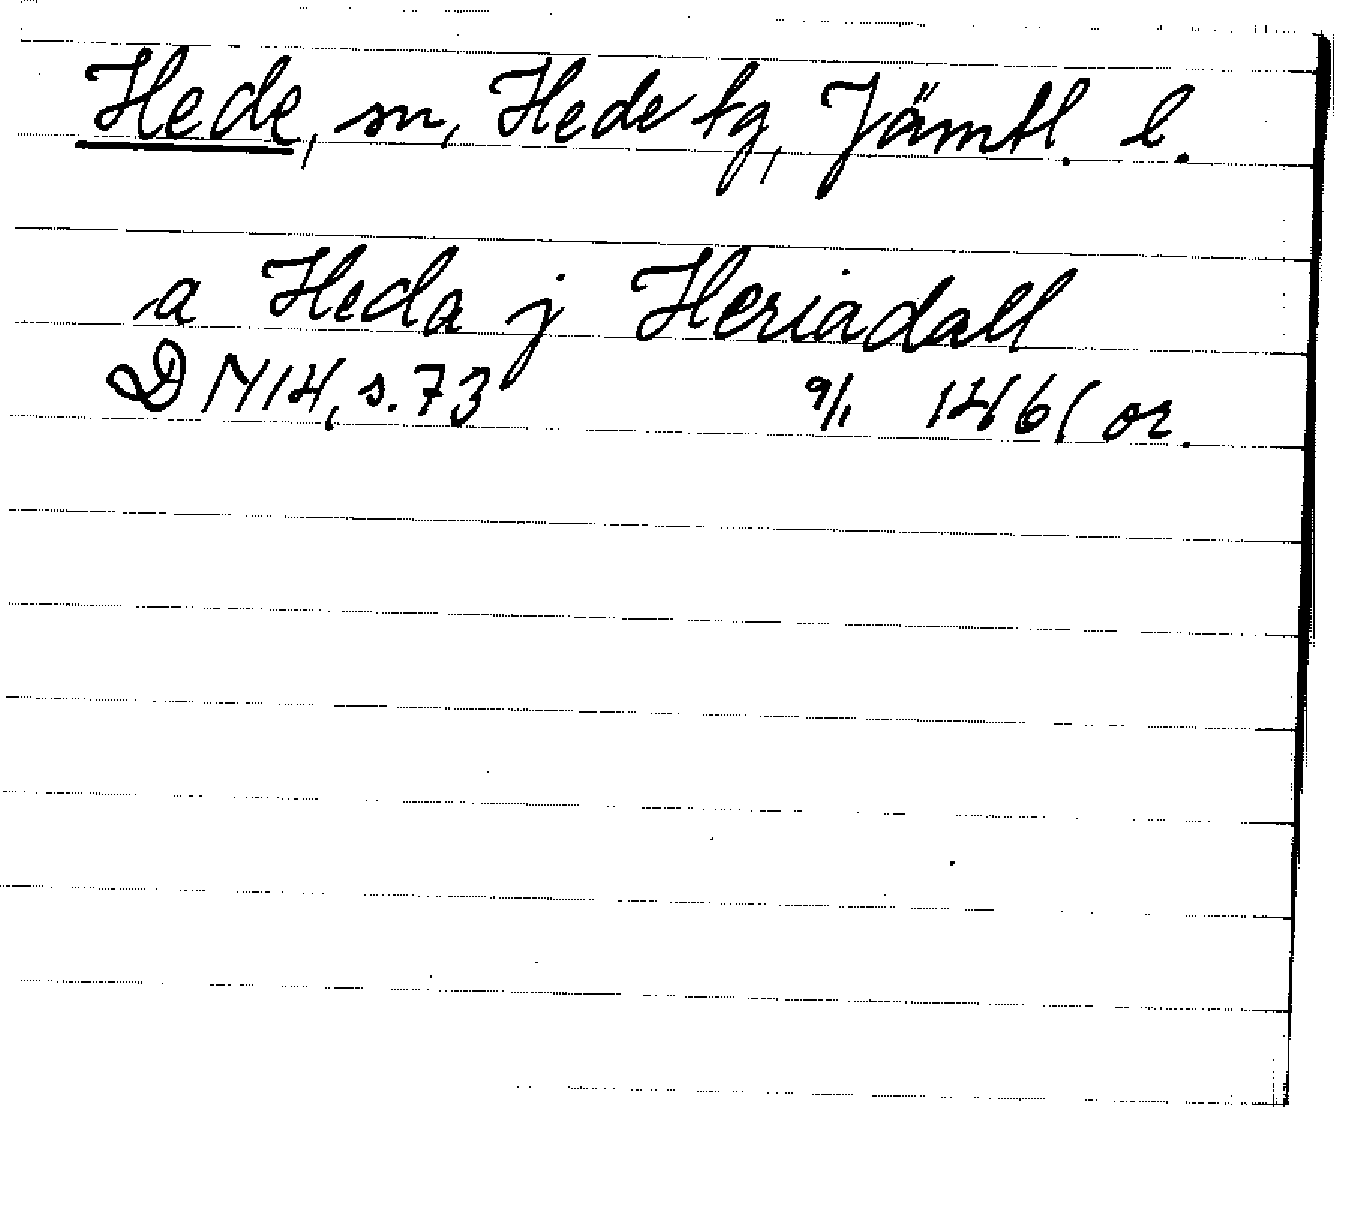 Hede, sn, Hede tg, Jämtl. l.
a Heda j Heriadall
DN 14, s. 73 9/1 1461 or.